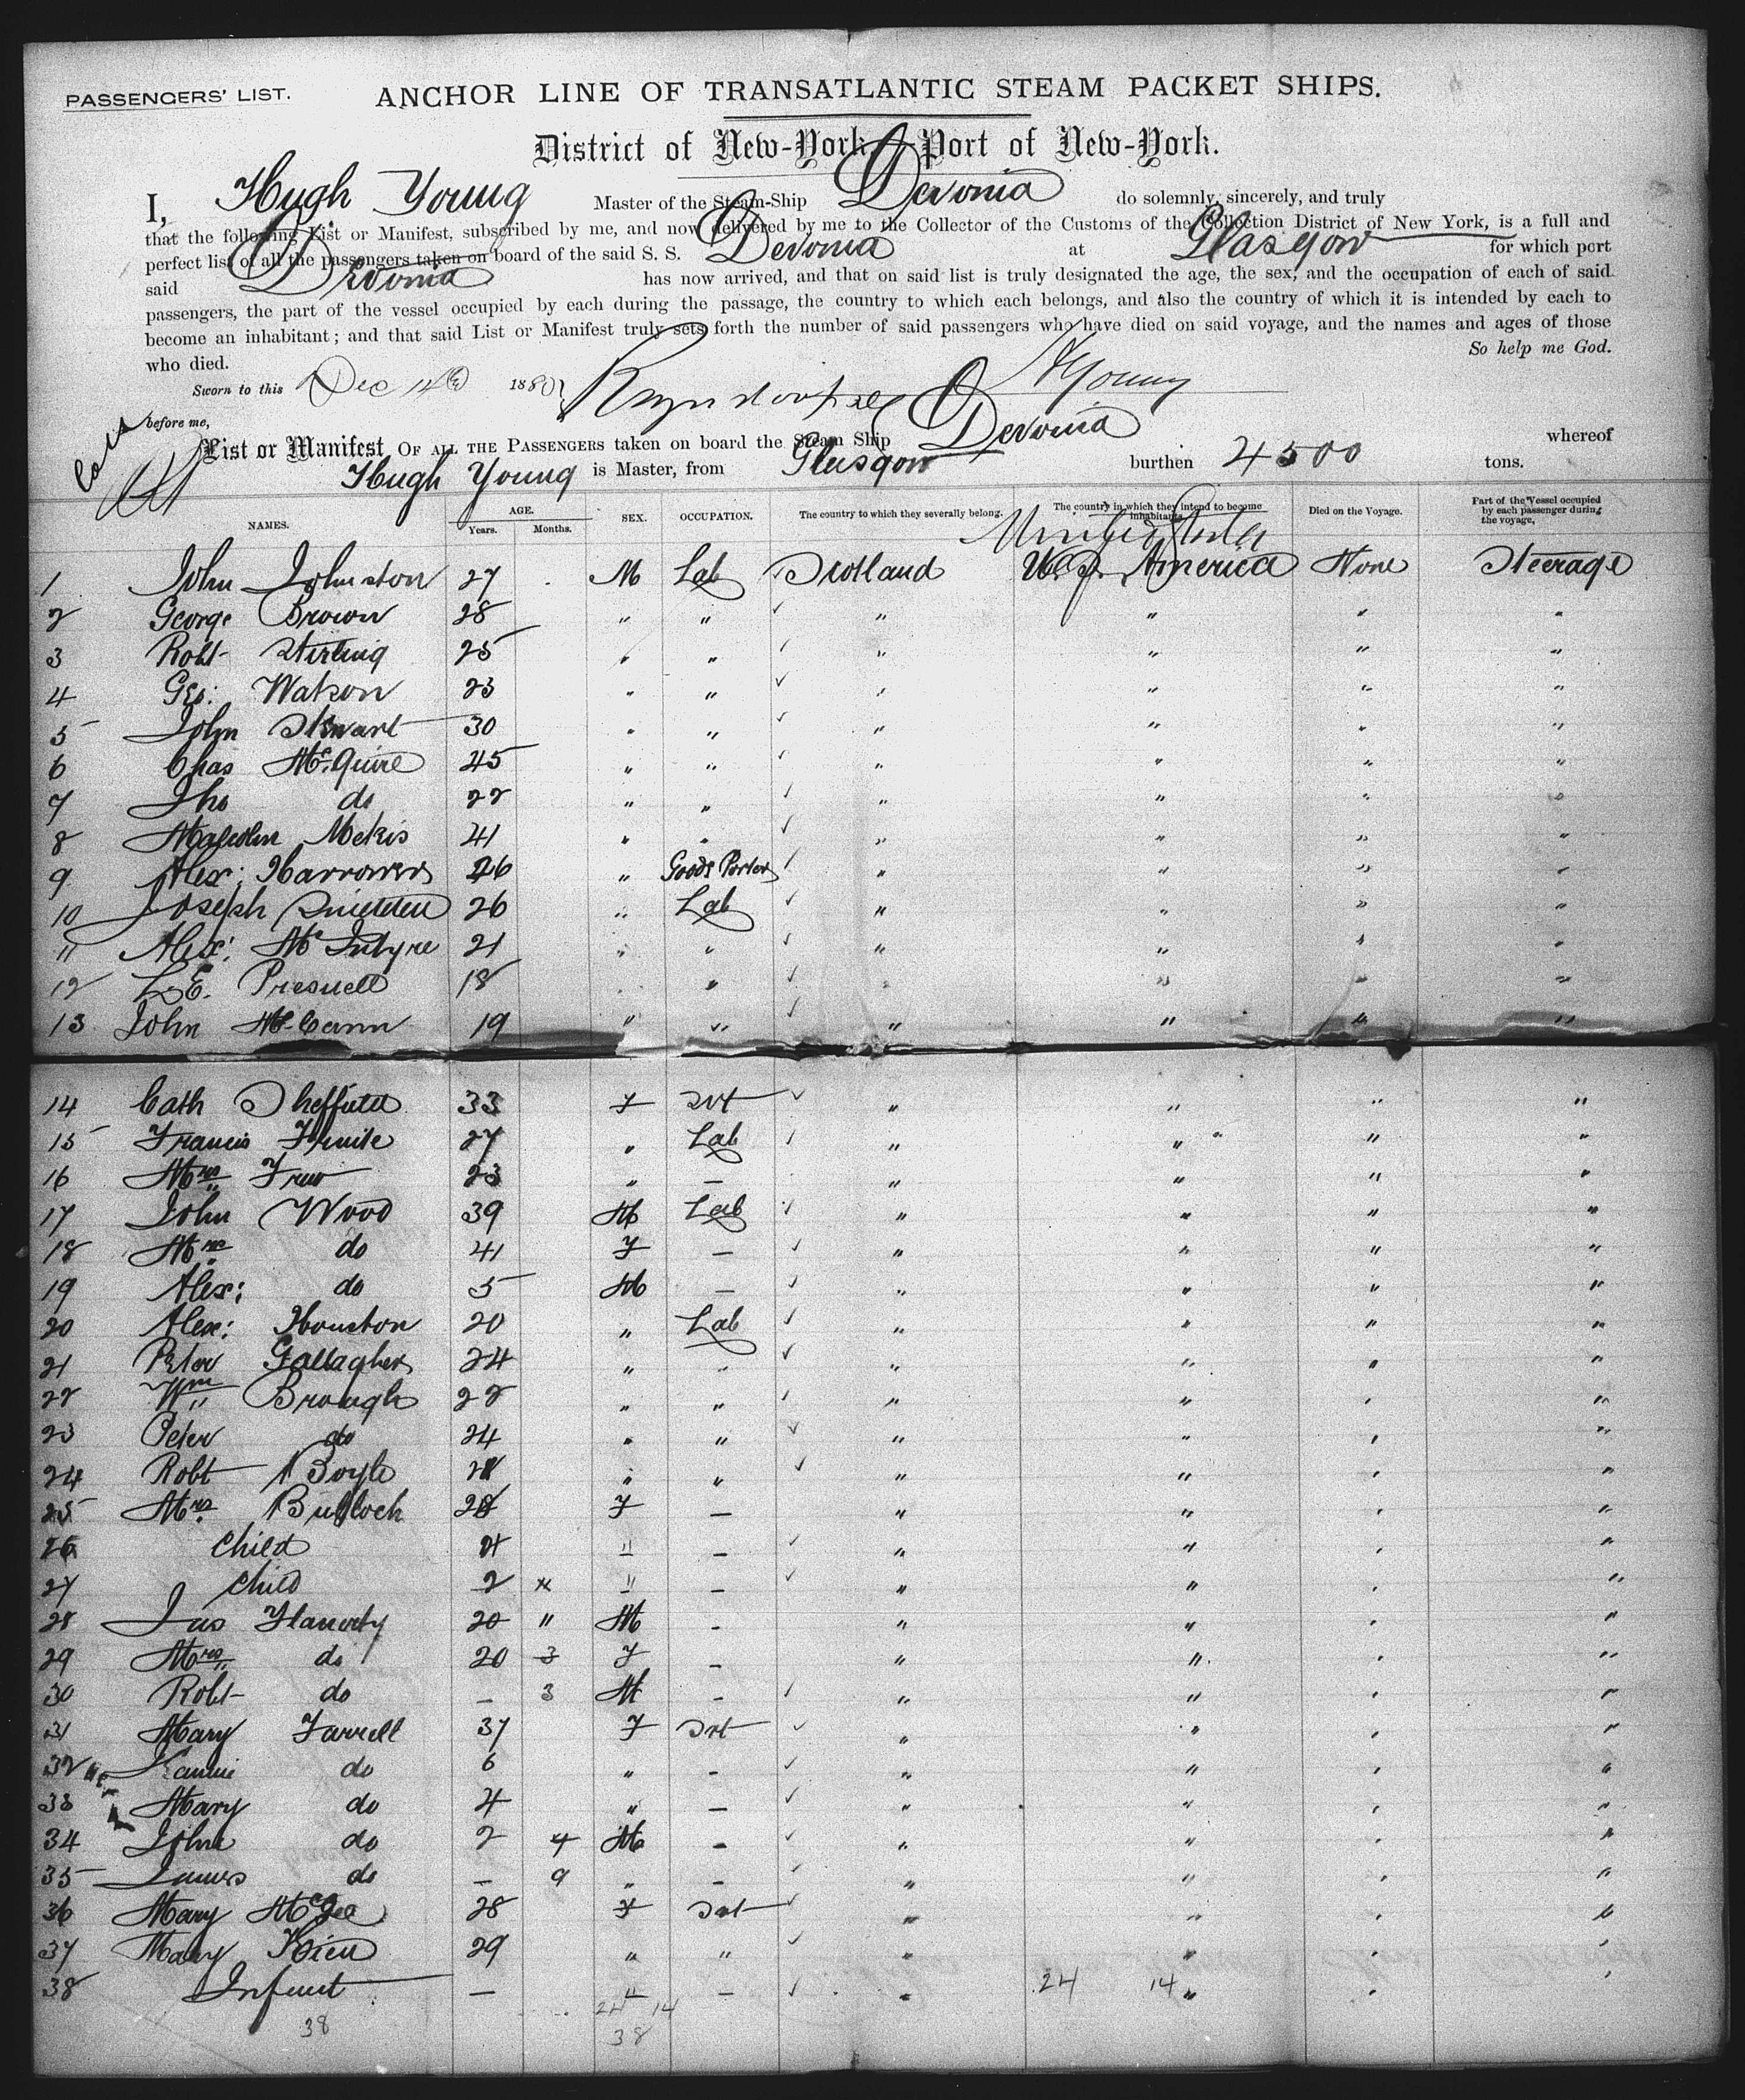 PASSENGERS' LIST. ANCHOR LINE OF TRANSATLANTIC STEAM PACKET SHIPS.
District of New-York, Port of New-York.
I, Hugh Young Master of the Steam-Ship Devonia do solemnly, sincerely, and truly
that the following List or Manifest, subscribed by me, and now delivered by me to the Collector of the Customs of the Collection District of New York, is a full and
perfect list of all the passengers taken on board of the said S. S. Devonia at Glasgow for which port
said Devonia has now arrived, and that on said list is truly designated the age, the sex, and the occupation of each of said
passengers, the part of the vessel occupied by each during the passage, the country to which each belongs, and also the country of which it is intended by each to
become an inhabitant; and that said List or Manifest truly sets forth the number of said passengers who have died on said voyage, and the names and ages of those
who died. So help me God.
Sworn to this Dec 14 1880 HYoung
before me,
List or Manifest OF ALL THE PASSENGERS taken on board the Steam Ship Devonia whereof
Hugh Young is Master, from Glasgow burthen 4500 tons.
NAMES. AGE. Years. Months. SEX. OCCUPATION. The country to which they severally belong. The country in which they intend to become inhabitants. Died on the Voyage. Part of the Vessel occupied by each passenger during the voyage.
United States
1 John Johnston 27 M Lab Scotland U.S. America None Steerage
2 George Brown 28 " " " " " "
3 Robt Stirling 25 " " " " " "
4 Geo: Watson 23 " " " " " "
5 John Stewart 30 " " " " " "
6 Chas McGuire 45 " " " " " "
7 Tho do 22 " " " " " "
8 Malcolm 41 " " " " " "
9 Alex: Harrower 26 " Goods Porter " " " "
10 Joseph 26 " Lab " " " "
11 Alex: McIntyre 21 " " " " " "
12 L.E. Presnell 18 " " " " " "
13 John McCann 19 " " " " " "
14 Cath Sheffield 33 F Svt " " " "
15 Francis 27 " Lab " " " "
16 Mrs Frew 23 " — " " " "
17 John Wood 39 M Lab " " " "
18 Mrs do 41 F — " " " "
19 Alex: do 5 M — " " " "
20 Alex: Houston 20 " Lab " " " "
21 Peter Gallagher 24 " " " " " "
22 Wm Brough 22 " " " " " "
23 Peter do 24 " " " " " "
24 Robt Boyle " " " " " "
25 Mrs Bulloch 28 F — " " " "
26 Child 4 " — " " " "
27 Child 2 " — " " " "
28 Jas Flanerty 20 " M - " " " "
29 Mrs do 20 3 F - " " " "
30 Robt do — 3 M - " " " "
31 Mary Farrell 37 F Svt " " " "
32 Fannie do 6 " - " " " "
33 Mary do 4 " — " " " "
34 John do 2 4 M - " " " "
35 James do — 9 " - " " " "
36 Mary McGee 28 F Svt " " " "
37 Mary 29 " " " " " "
38 Infant — " — " " "
24 14
38
24 14
38